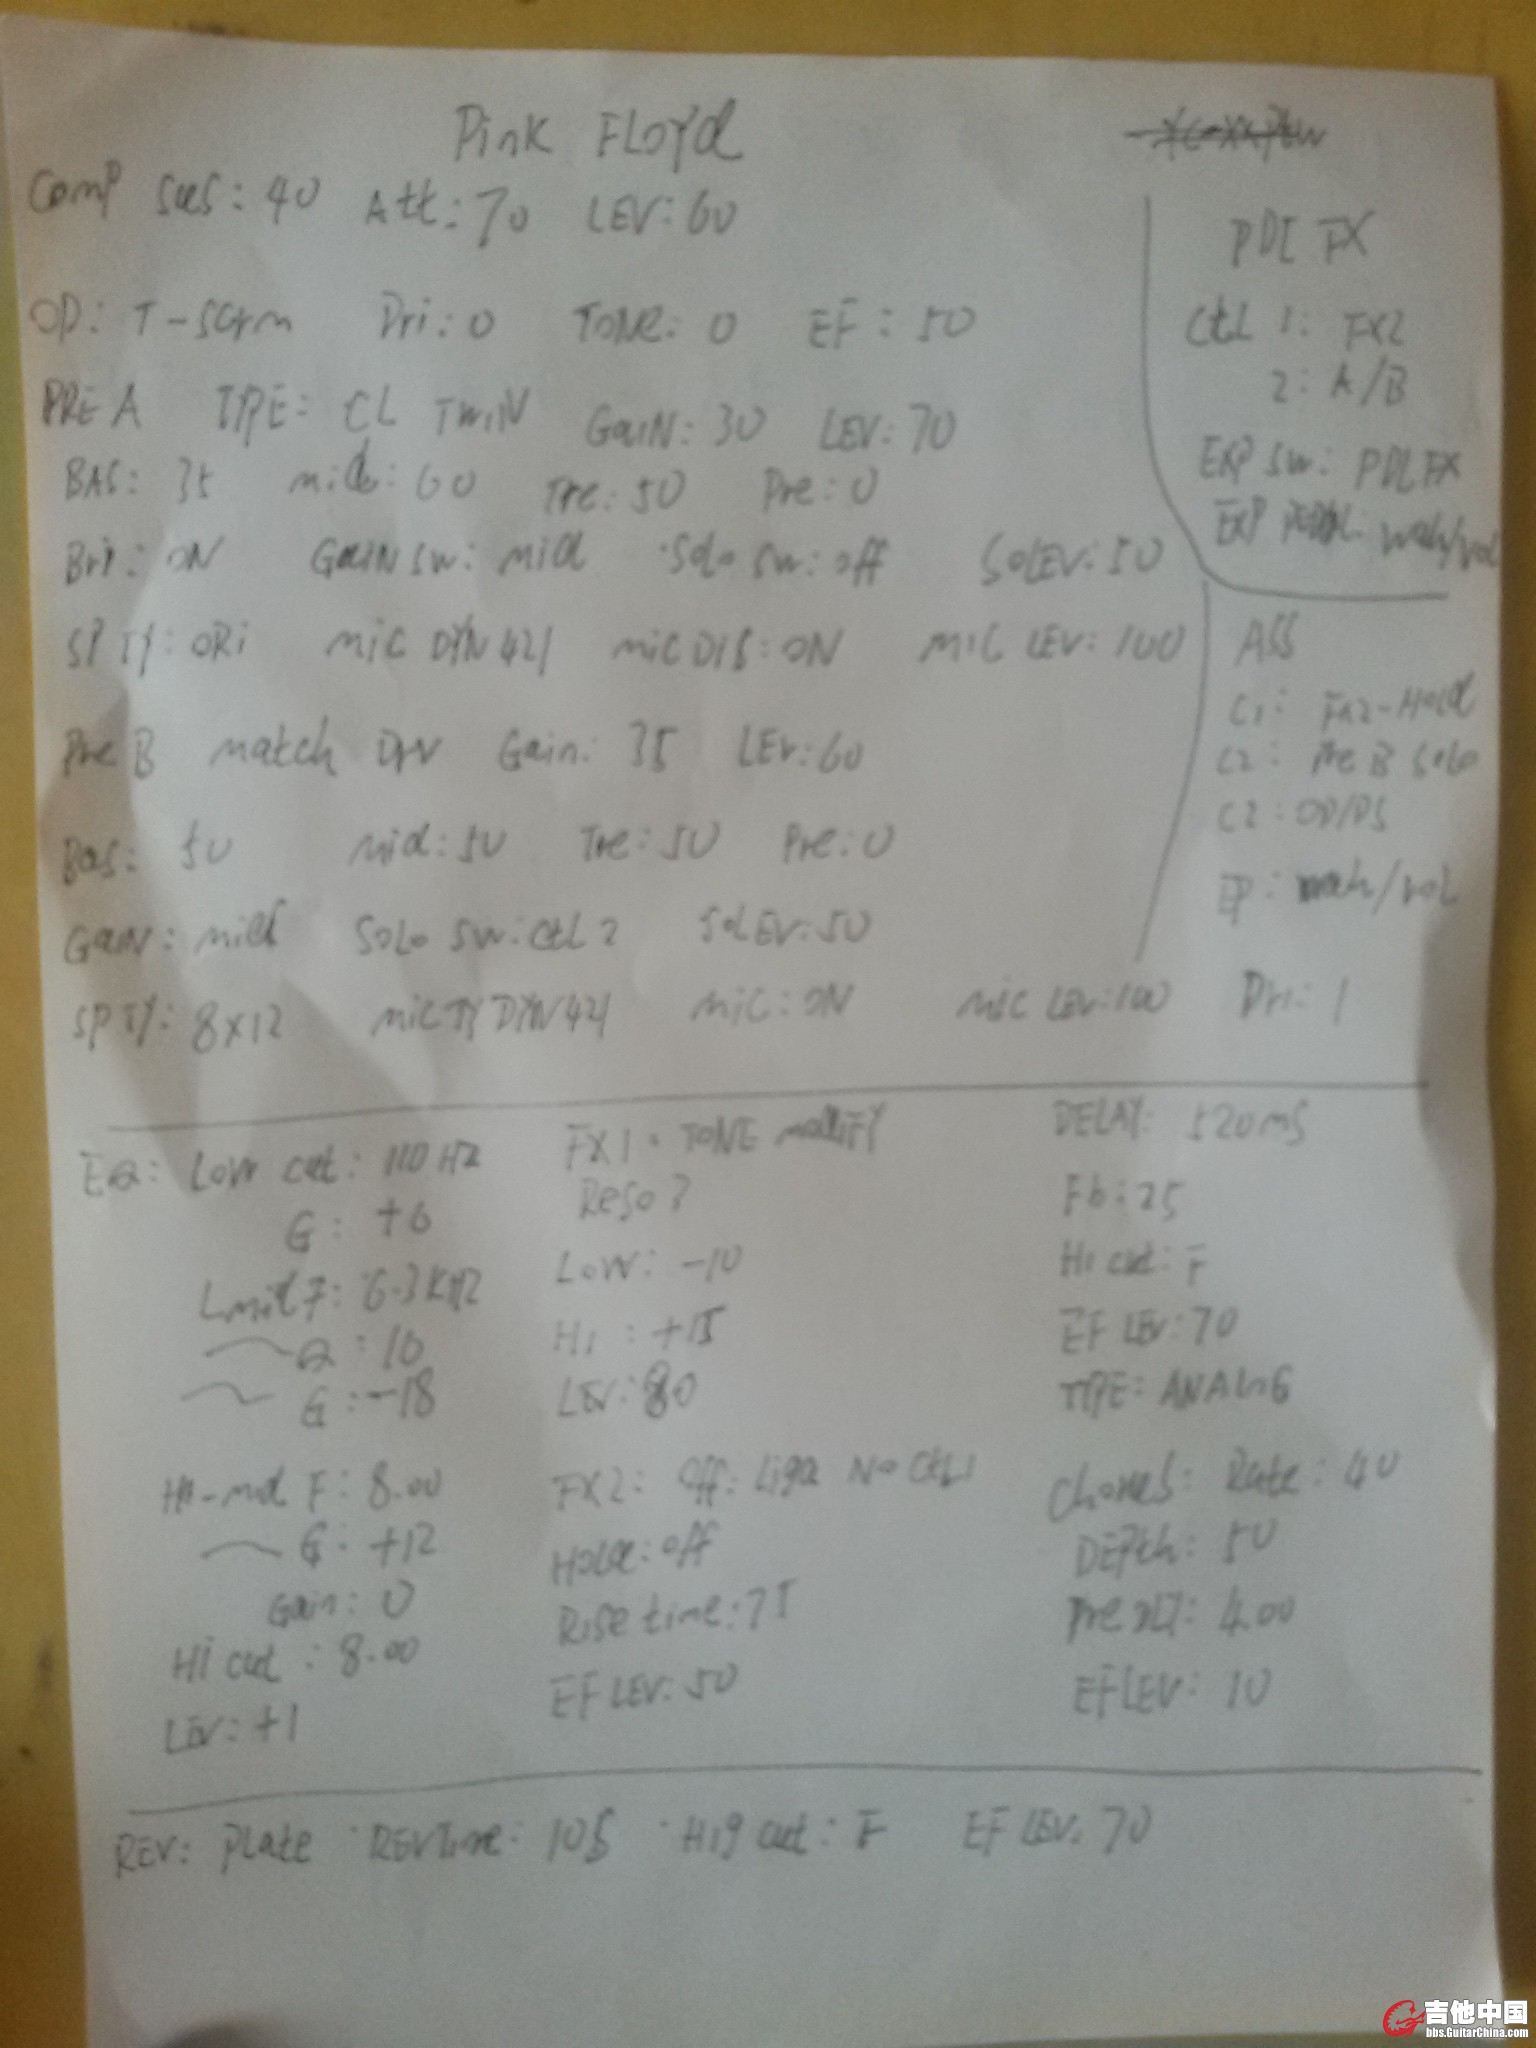 Pink FLOYd
Comp Sus: 40 Att: 70 LEV: 60
OD: T-SCrm Dri: 0 TONe: 0 EF: 50
PRE A TYPE: CL TWIN GaIN: 30 LEV: 70
BAS: 35 mid: 60 Tre: 50 Pre: 0
Bri: ON GaIN SW: mid Solo SW: off SOLEV: 50
SP TY: ORi miC DYN 421 miC DIS: ON MIC LEV: 100
Pre B match Drv Gain: 35 LEv: 60
Bas: 50 mid: 50 Tre: 50 Pre: 0
GaiN: mid SOLo SW: CtL 2 SOLEV: 50
SP TY: 8X12 miC TY DYN 421 miC: ON MIC LEV: 100 Dri: 1
PDL FX
CtL 1: FX2
2: A/B
EXP SW: PDL FX
EXP PEDAL: wah/vol
ASS
C1: FX2-HOLd
C2: Pre B SOLO
C2: OD/DS
EP: wah/vol
EQ: LOW cut: 110 HZ
G: +6
Lmid F: 6.3KHZ
Q: 16
G: -18
Hi-mid F: 8.00
G: +12
Gain: 0
Hi cut: 8.00
LEV: +1
FX1: TONE modIFY
Reso ?
LOW: -10
HI: +15
LEV: 80
FX2: Off: No CtL1
HOLd: off
RISE time: 75
EF LEV: 50
DELAY: 520mS
Fb: 25
HI cut: F
EF LEV: 70
TYPE: ANALOG
Chorus: Rate: 40
DEPth: 50
Pre DLY: 4.00
EF LEV: 10
REV: Plate REV Time: 105 Hig cut: F EF LEV: 70
吉他中国
bbs.GuitarChina.com